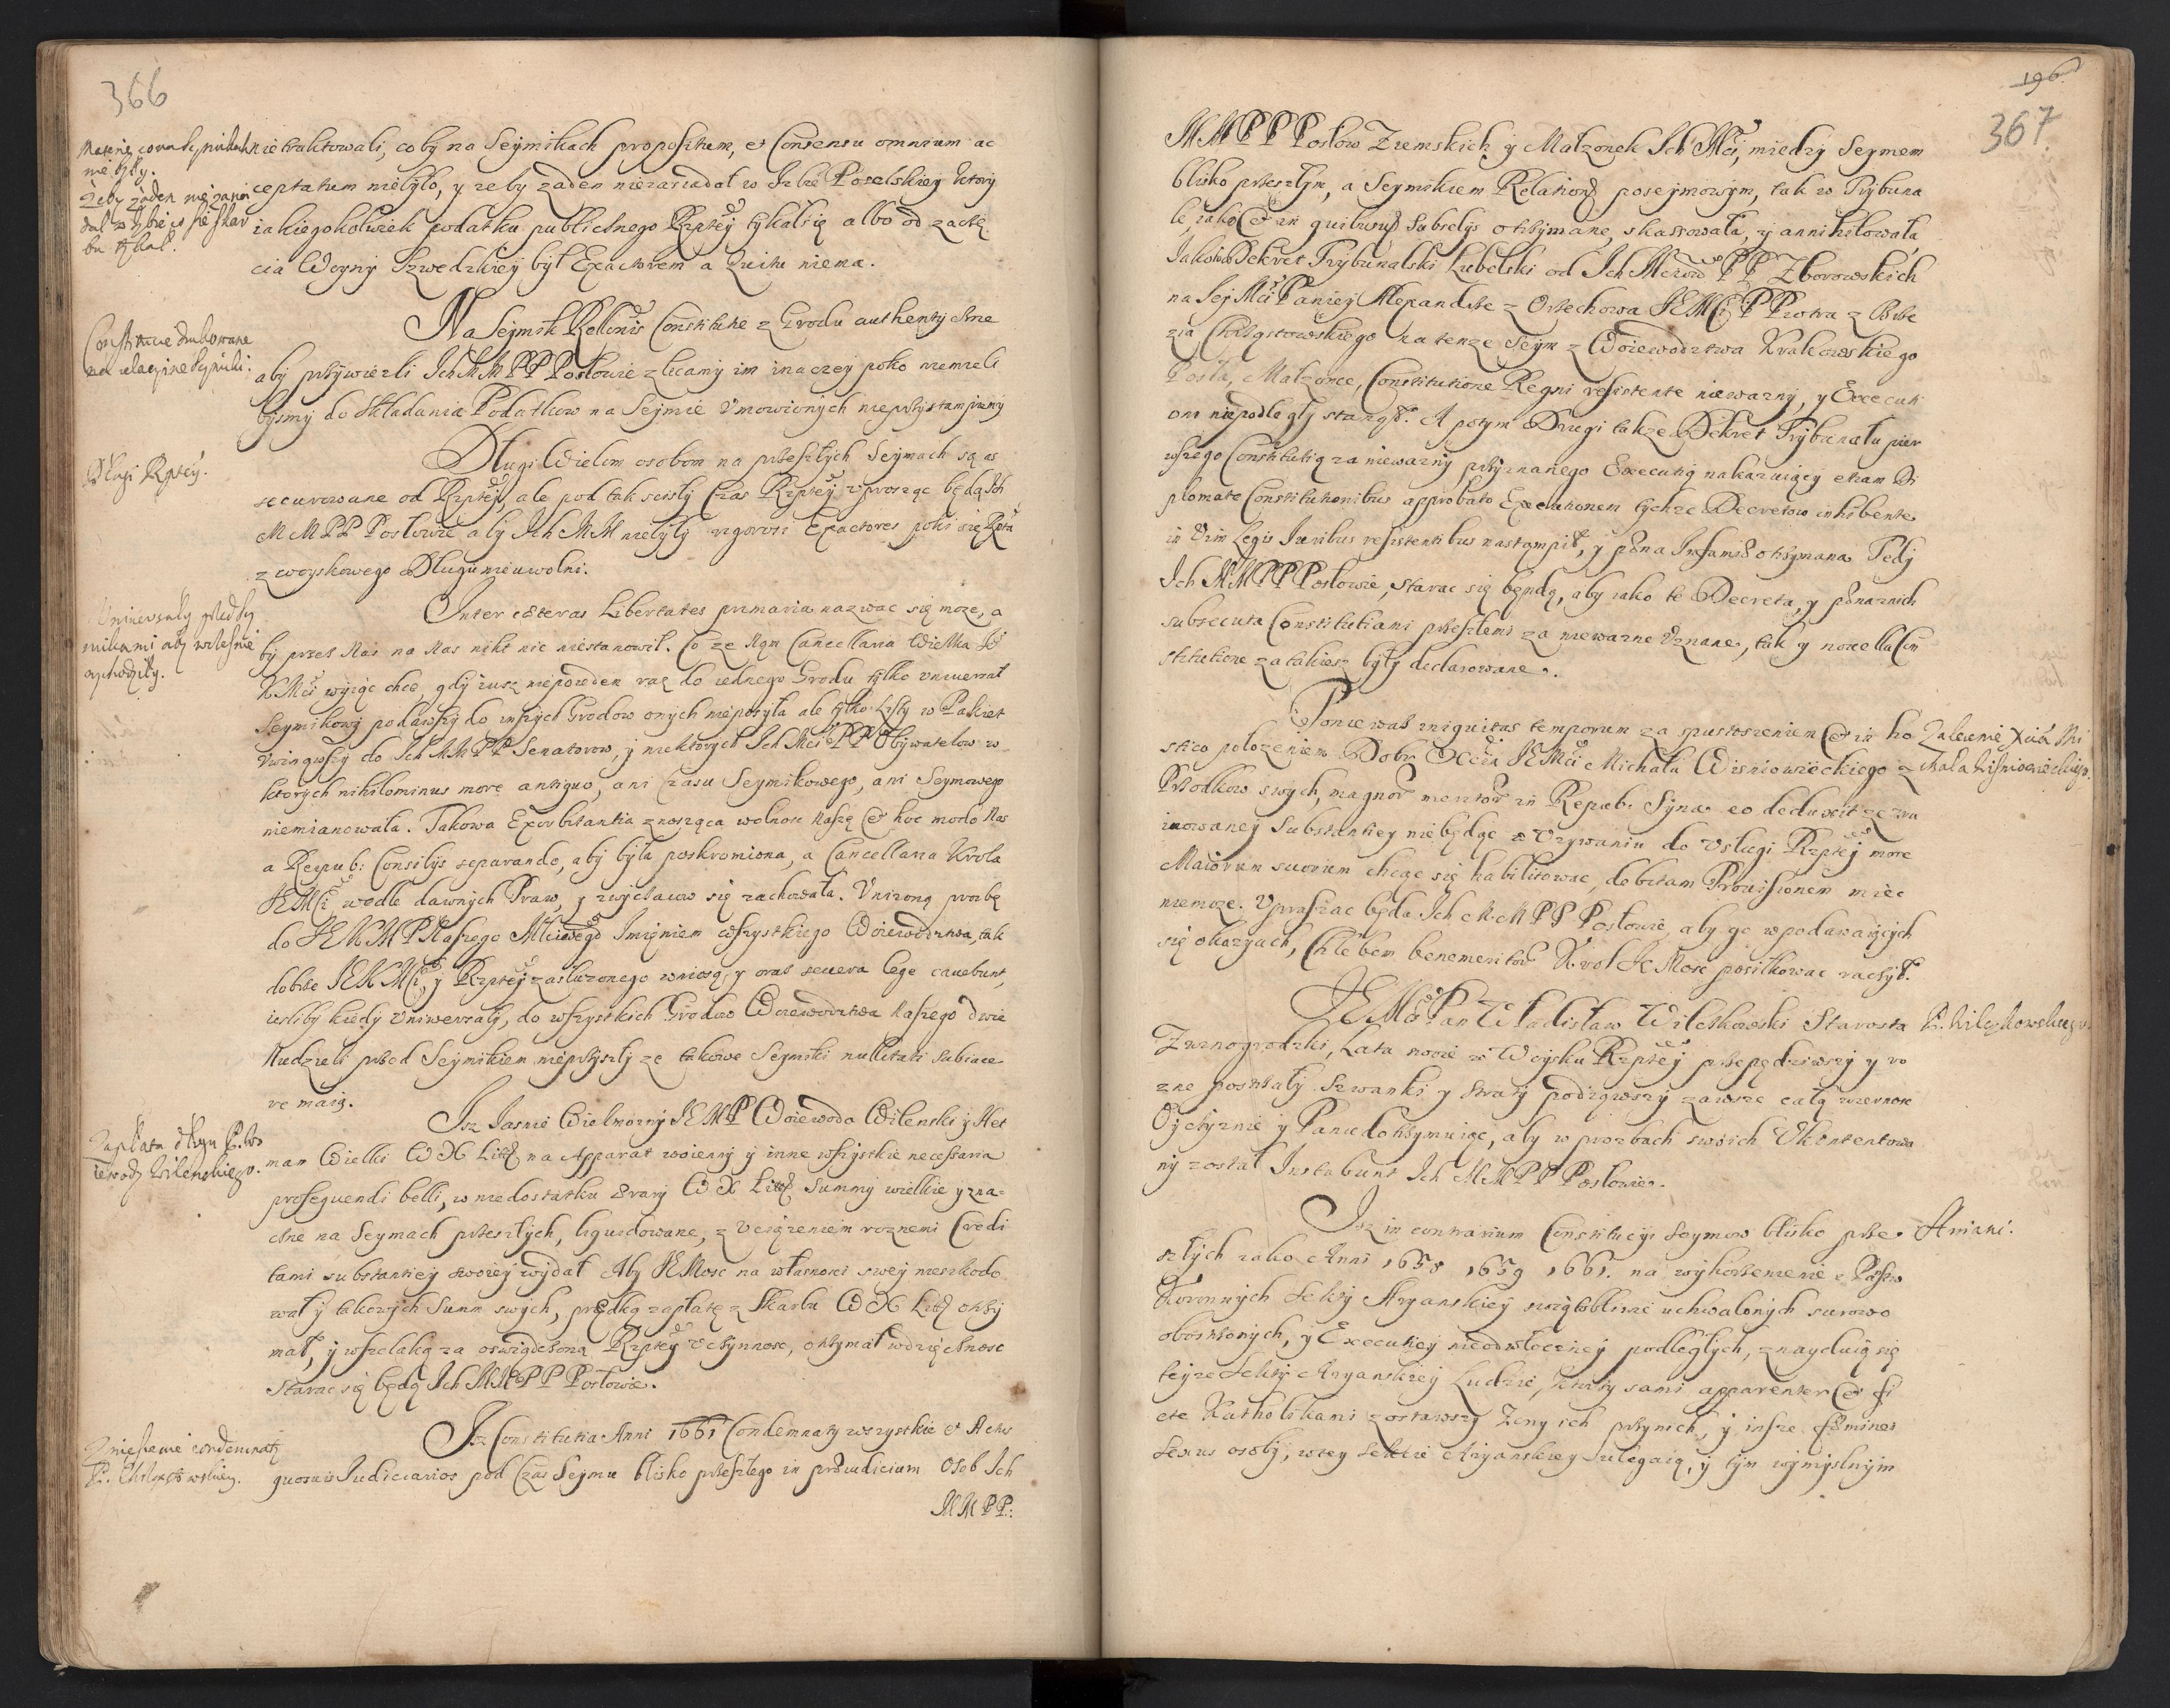 366
Materie co na Sejmikach
nie były.
Żeby żaden nie zasia
dał w Izbie co się Skar
bu tykał.
nie traktowali, co by na Seymikach propositum, et Consensu omnium ac
ceptatum niebyło, y zeby zaden niezasiadał w Izbie Poselskiey ktory
iakiegokolwiek podatku publicznego Rzptey tykał się albo od zaczę
cia Woyny Szwedzkiey był Exactorem a Quitu niema.
Constitucie drukowane
na relacyine seymiki.
Na Seymik Rellonis Constitutie z Grodu authentyczne
aby przywiezli Ich MM PP Posłowie zlecamy im inaczey poko niemieli
bysmy do składania Podatkow na Sejmie Umowionych nieprzystąpiemy
Długi Rzptey.
Długi Wielom osobom na przeszłych Seymach są as
securowane od Rzptey, ale pod tak scisły Czas Rzptey uprosząc będą Ich
MM PP Posłowie aby Ich MM niebyły rigorosi Exactores poki się Rpta
z woyskowego Długu nieuwolni.
Uniwersały przed Sey
mikami aby wcześnie
wychodziły.
Inter cæteras Libertates primaria nazwac się moze, a
by przez Nas na Nas nikt nic niestanowił. Co ze Nam Cancellaria Wielka JE
KMci wziąc chce, gdy iusz niepoieden raz do iednego Grodu tylko uniwersał
Seymikowy podawszy do inszych Grodow onych nieposyła ale tylko Listy w Pakiet
uwinąwszy do Ich MM PP Senatorow, y niektorych Ich Mci PP Obywatelow w
ktorych nihilominus more antiquo, ani Czasu Seymikowego, ani Seymowego
niemianowała. Takowa Exorbitantia znosząca wolnosc Naszę et hoc modo Nas
a Repub: Consilys separando, aby była poskromiona, a Cancellaria Krola
JEMCi wedle dawnych Praw, y zwyczaiow się zachowała. Unizoną prozbę
do JE K M P Naszego Mciwego Imięniem wszystkiego Woiewodztwa, tak
dobrze JE K MCi, y Rzptey zasłuzonego wniosą, y oraz severa lege cavebunt,
iesliby kiedy Uniwersały, do wszystkich Grodow Woiewodztwa Naszego dwie
Niedzieli przed Seymikiem nieprzyszły ze takowe Seymiki nullitati subiace
re maią.
Zapłata długu P. Wo
iewody Wilenskiego.
Isz Jasnie Wielmozny JEMP Woiewoda Wilenski y Het
man Wielki W X Litt na Apparat woienny y inne wszystkie necessaria
prosequendi belli, w niedostatku Ærary W X Litt Summy wielkie y zna-
czne na Seymach przeszłych, liquidowane, z Uciązeniem roznemi Credi
tami substantiey swoiey wydał Aby JEMosc na własnosci swey nieszkodo
wał y takowych Summ swych, prędką zapłatę z Skarbu W X Litt otrzy
mał, y wszelaką za oswiadczoną Rzptey Uczynnosc, otrzymał wdzięcznosc
starac się będą Ich MM PP Posłowie.
Zniesienie condemnaty
P. Chrząstowskiey.
Isz Constitutia Anni 1661 Condemnaty wszystkie et Actus
quosvis Judiciarios pod Czas Seymu blisko przeszłego in præiudicium Osob Ich
MM PP:
196
367.
MM PPP Posłow Ziemskich y Małzonek Ich Mci, miedzy Seymem
blisko przeszłym, a Seymikiem Relationis poseymowym, tak w Trybuna
le, iako et in quibusvis Subselys otrzymane, skassowała, y annihilowała
Jakosz Dekret Trybunalski Lubelski od Ich Mciow PP Zborowskich
na Jej Mci Paniey Alexandrze z Orzechowa JEMCi P Piotra z Brze
zia Chrząstowskiego na tenze Seym z Woiewodztwa Krakowskiego
Posła, Małzonce, Constitutione Regni resistente niewazny, y Executi
oni niepodległy stanął. A potym Drugi takze Dekret Trybunału pier
wszego Constitutią za niewazny przyznanego Executią nakazuiący etiam Di
plomate Constitutionibus approbato Executionem tychze Decretow inhibente,
in Vim Legis Juribus resistentibus nastąpił, y pæna Infamiæ otrzymana. Tedy
Ich MM PP Posłowie, starac się będą, aby iako te Decreta, y pæna z nich
subsecuta Constitutiami przeszłemi za niewazne Uznane, tak y novella Con
stitutione za takiesz były declarowane.
Zalecenie Xcia Mi
chała Wisniowieckiego.
Poniewasz iniquitas temporum za spustoszeniem et in ho
stico połozeniem Dobr Xcia JEMci Michała Wisniowieckiego z
Przodkow swych, magnor meritor in Repub. Syna eo deduxit ze zru
inowaney Substantiey niebędąc w Uzywaniu do Usługi Rzptey more
Maiorum suorum chcąc się habilitowac, debitam Provisionem miec
niemoze. Upraszac będą Ich MM PP Posłowie, aby go w podawaiących
się okazyach, Chlebem benemeritor Krol JE Mosc posiłkowac raczył.
P. Wilczkowskiego.
JEMci Pan Władisław Wilczkowski Starosta
Zwinogrodzki, Lata swoie w Woysku Rzptey przepędziwszy y ro
zne postrzały Szwanki y straty podiąwszy zawsze całą wiernosc
Oyczyznie y Panu dotrzymuiąc, aby w prozbach swoich Ukontentowa
ny został Instabunt Ich MM PP Posłowie.
Ariani.
Isz in contrarium Constitucyi seymow blisko prze
szłych iako Anni 1658 1659 1661. na wykorzenienie z Panstw
Koronnych Sekty Aryanskiey swiątobliwie uchwalonych surowo
obostrzonych, y Executiey nieodwłoczney podległych, znayduią się
teyze Sekty Aryanskiey Ludzie, ktorzy sami apparenter et fi
cte Katholikami zostawszy Zony ich przynich, y insze fæminei
sexus osoby, wtey Sektcie Aryanskiey zulegaią, y tym wymyslnym